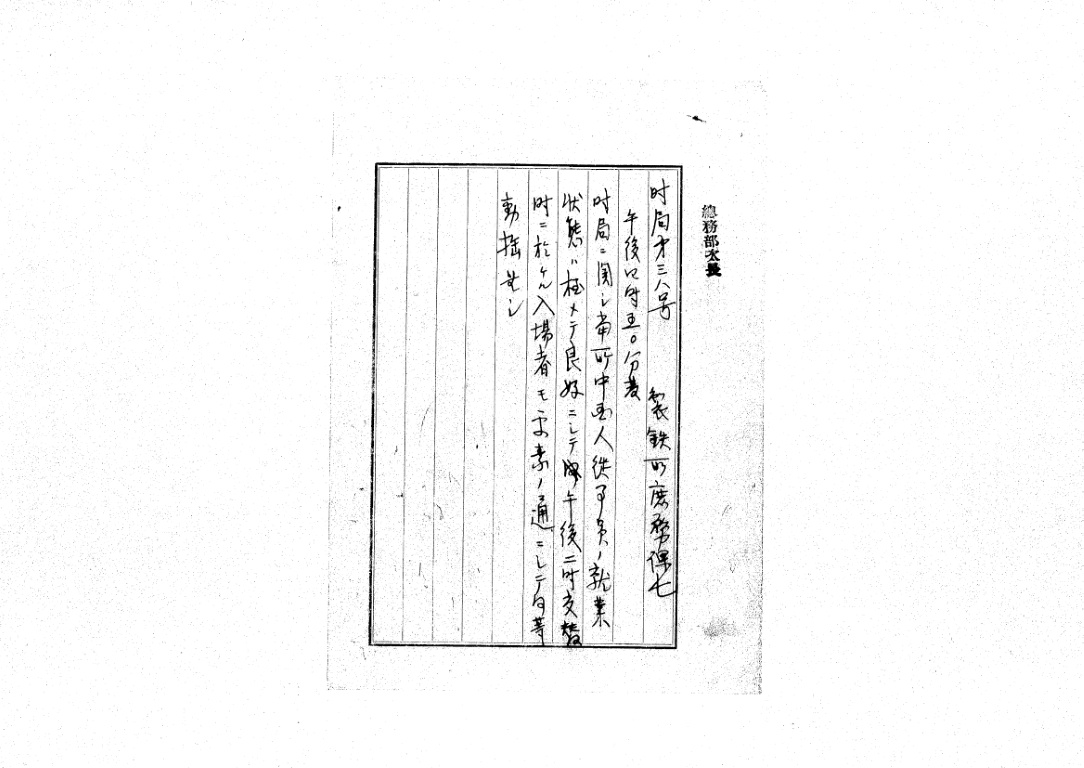 總務部次長
时局才三八号
製鉄所庶務課七
午後四时五〇分着
时局ニ関シ当所中国人従事員ノ就業
状態ハ極メテ良好ニシテ午後二时交替
时ニ於ケル入場者モ平素ノ通ニシテ何等
動揺無シ